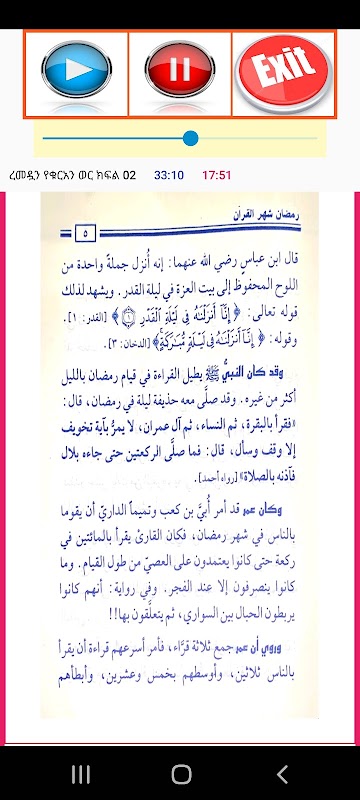 Exit
ረመዷን የቁርአን ወር ክፍል 02 33:10 17:51
رمضان شهر القرآن
٥
قال ابن عباس رضي الله عنهما: إنه أُنزل جملةً واحدة من
اللوح المحفوظ إلى بيت العزة في ليلة القدر. ويشهد لذلك
قوله تعالى: ﴿إِنَّا أَنزَلْنَاهُ فِي لَيْلَةِ الْقَدْرِ ۝١﴾ [القدر: ١].
وقوله: ﴿إِنَّا أَنزَلْنَاهُ فِي لَيْلَةٍ مُّبَارَكَةٍ﴾ [الدخان: ٣].
وقد كان النبيُّ ﷺ يطيل القراءة في قيام رمضان بالليل
أكثر من غيره. وقد صلَّى معه حذيفة ليلة في رمضان، قال:
«فقرأ بالبقرة، ثم النساء، ثم آل عمران، لا يمرُّ بآية تخويف
إلا وقف وسأل، قال: فما صلَّى الركعتين حتى جاءه بلال
فآذنه بالصلاة» [رواه أحمد].
وكان عمر قد أمر أُبيَّ بن كعب وتميماً الداريَّ أن يقوما
بالناس في شهر رمضان، فكان القارئ يقرأ بالمائتين في
ركعة حتى كانوا يعتمدون على العصيّ من طول القيام. وما
كانوا ينصرفون إلا عند الفجر. وفي رواية: أنهم كانوا
يربطون الحبال بين السواري، ثم يتعلَّقون بها!!
وروي أن عمر جمع ثلاثة قرَّاء، فأمر أسرعهم قراءة أن يقرأ
بالناس ثلاثين، وأوسطهم بخمس وعشرين، وأبطأهم